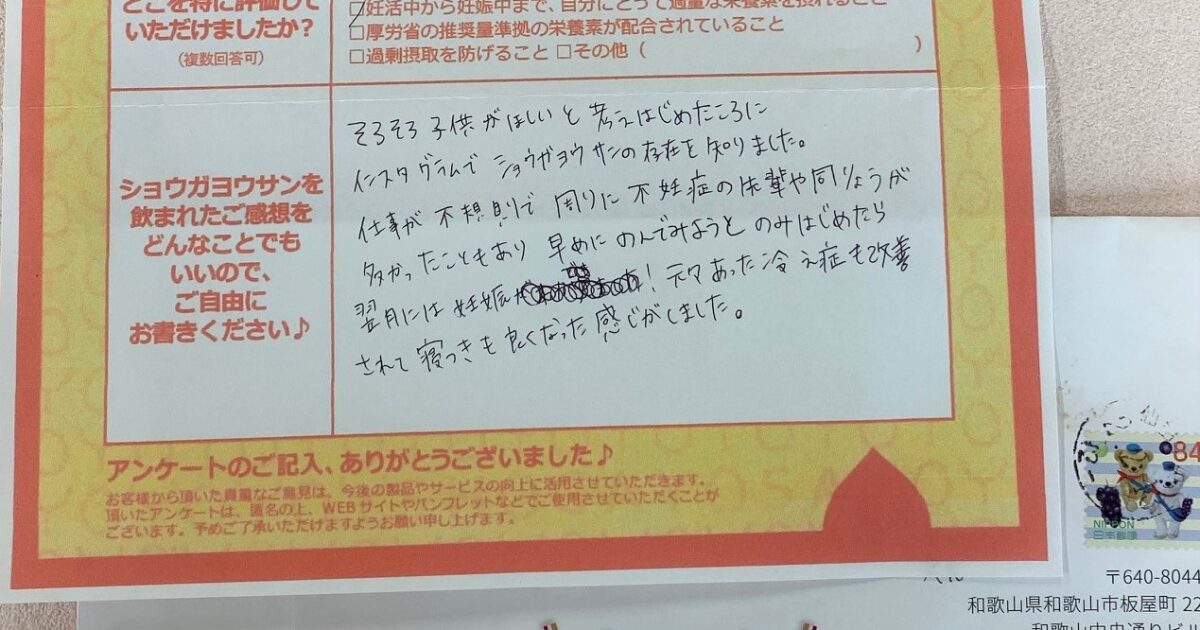 どこを特に評価して
いただけましたか?
(複数回答可)
妊活中から妊娠中まで、自分にとって適量な栄養素を摂れること
□厚労省の推奨量準拠の栄養素が配合されていること
□過剰摂取を防げること □その他 ( )
ショウガヨウサンを
飲まれたご感想を
どんなことでも
いいので、
ご自由に
お書きください♪
そろそろ子供がほしいと考えはじめたころに
インスタグラムでショウガヨウサンの存在を知りました。
仕事が不規則で周りに不妊症の先輩や同りょうが
多かったこともあり早めにのんでみようとのみはじめたら
翌月には妊娠が!元々あった冷え症も改善
されて寝つきも良くなった感じがしました。
アンケートのご記入、ありがとうございました♪
お客様から頂いた貴重なご意見は、今後の製品やサービスの向上に活用させていただきます。
頂いたアンケートは、匿名の上、WEBサイトやパンフレットなどでご使用させていただくことが
ございます。予めご了承いただけますようお願い申し上げます。
84
NIPPON
日本郵便
〒640-8044
和歌山県和歌山市板屋町 22
和歌山中央通りビル